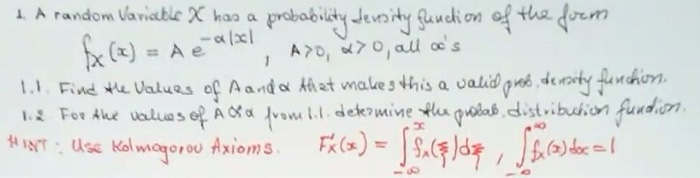 1. A random Variable X has a probability density function of the form
fX(x) = A e^-α|x| , A>0, α>0, all x's
1.1. Find the Values of A and α that makes this a valid prob. density function.
1.2 For the values of A & α from 1.1. determine the probab. distribution function.
HINT: Use Kolmogorov Axioms. FX(x) = ∫_-∞^x fx(ξ)dξ, ∫_-∞^∞ fx(x)dx = 1